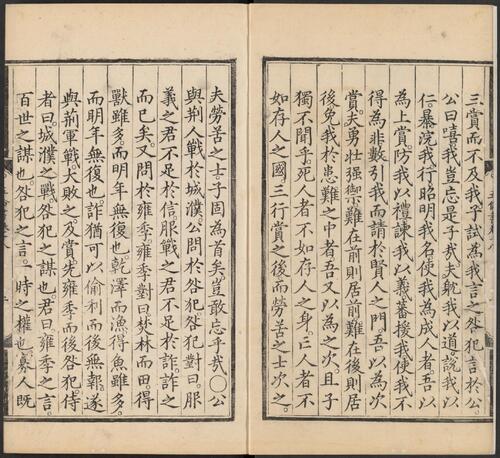 三賞而不及我子試為我言之咎犯言於公。
公曰嘻我豈忘是子哉夫躭我以道。說我以
仁。暴浣我行昭明我名。使我為成人者。吾以
為上賞。防我以禮。諫我以義。蕃援我使我不
得為非。數引我而請於賢人之門。吾以為次
賞。夫勇壯强禦。難在前則居前難在後則居
後。免我於患難之中者。吾又以為之次。且子
獨不聞乎。死人者不如存人之身。亡人者不
如存人之國。三行賞之後而勞苦之士次之。
夫勞苦之士子固為首矣豈敢忘乎哉○公
與荆人戰於城濮。公問於咎犯。咎犯對曰。服
義之君不足於信。服戰之君不足於詐。詐之
而已矣。又問於雍季。雍季對曰。焚林而田。得
獸雖多。而明年無復也。乾澤而漁得魚雖多。
而明年無復也。詐猶可以偷利而後無報。遂
與荆軍戰。大敗之。及賞。先雍季而後咎犯。侍
者曰。城濮之戰。咎犯之謀也君曰。雍季之言。
百世之謀也。咎犯之言。一時之權也。寡人既